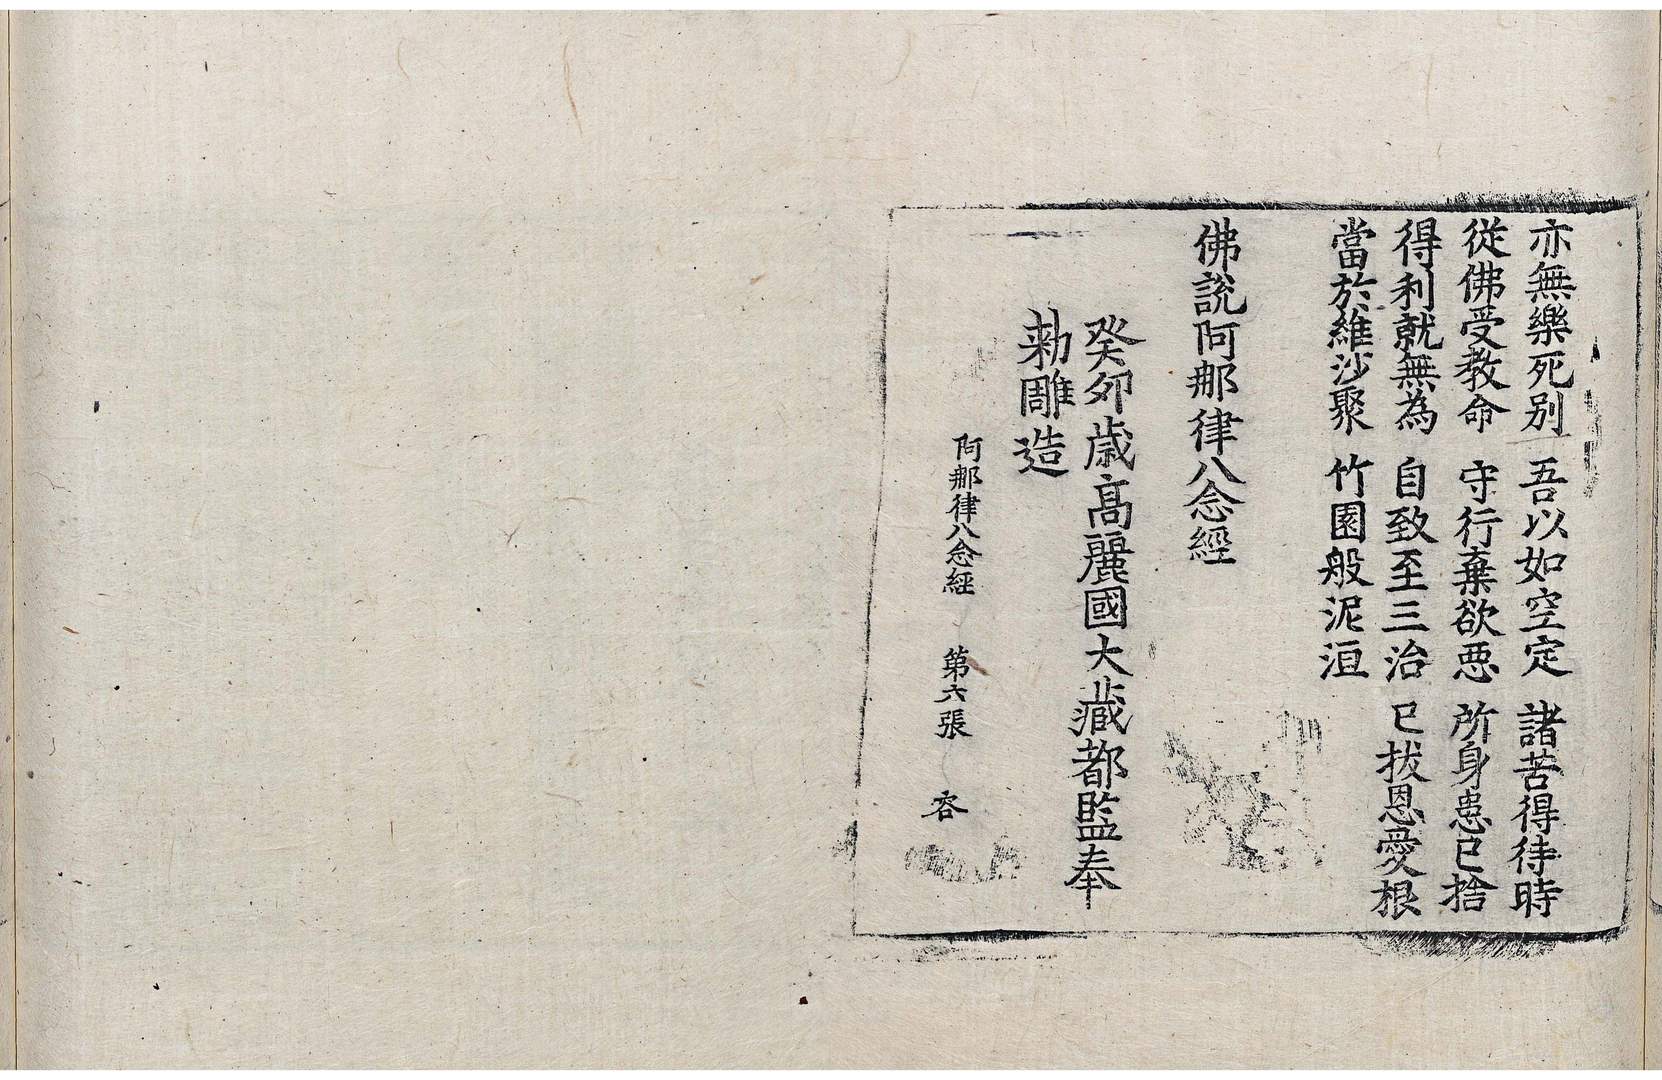 亦無樂死別 吾以如空定 諸苦得待時
從佛受教命 守行棄欲惡 所身患已捨
得利就無為 自致至三治 已拔恩愛根
當於維沙聚 竹園般泥洹
佛說阿那律八念經
癸卯歲高麗國大藏都監奉
勅雕造
阿那律八念經 第六張 容